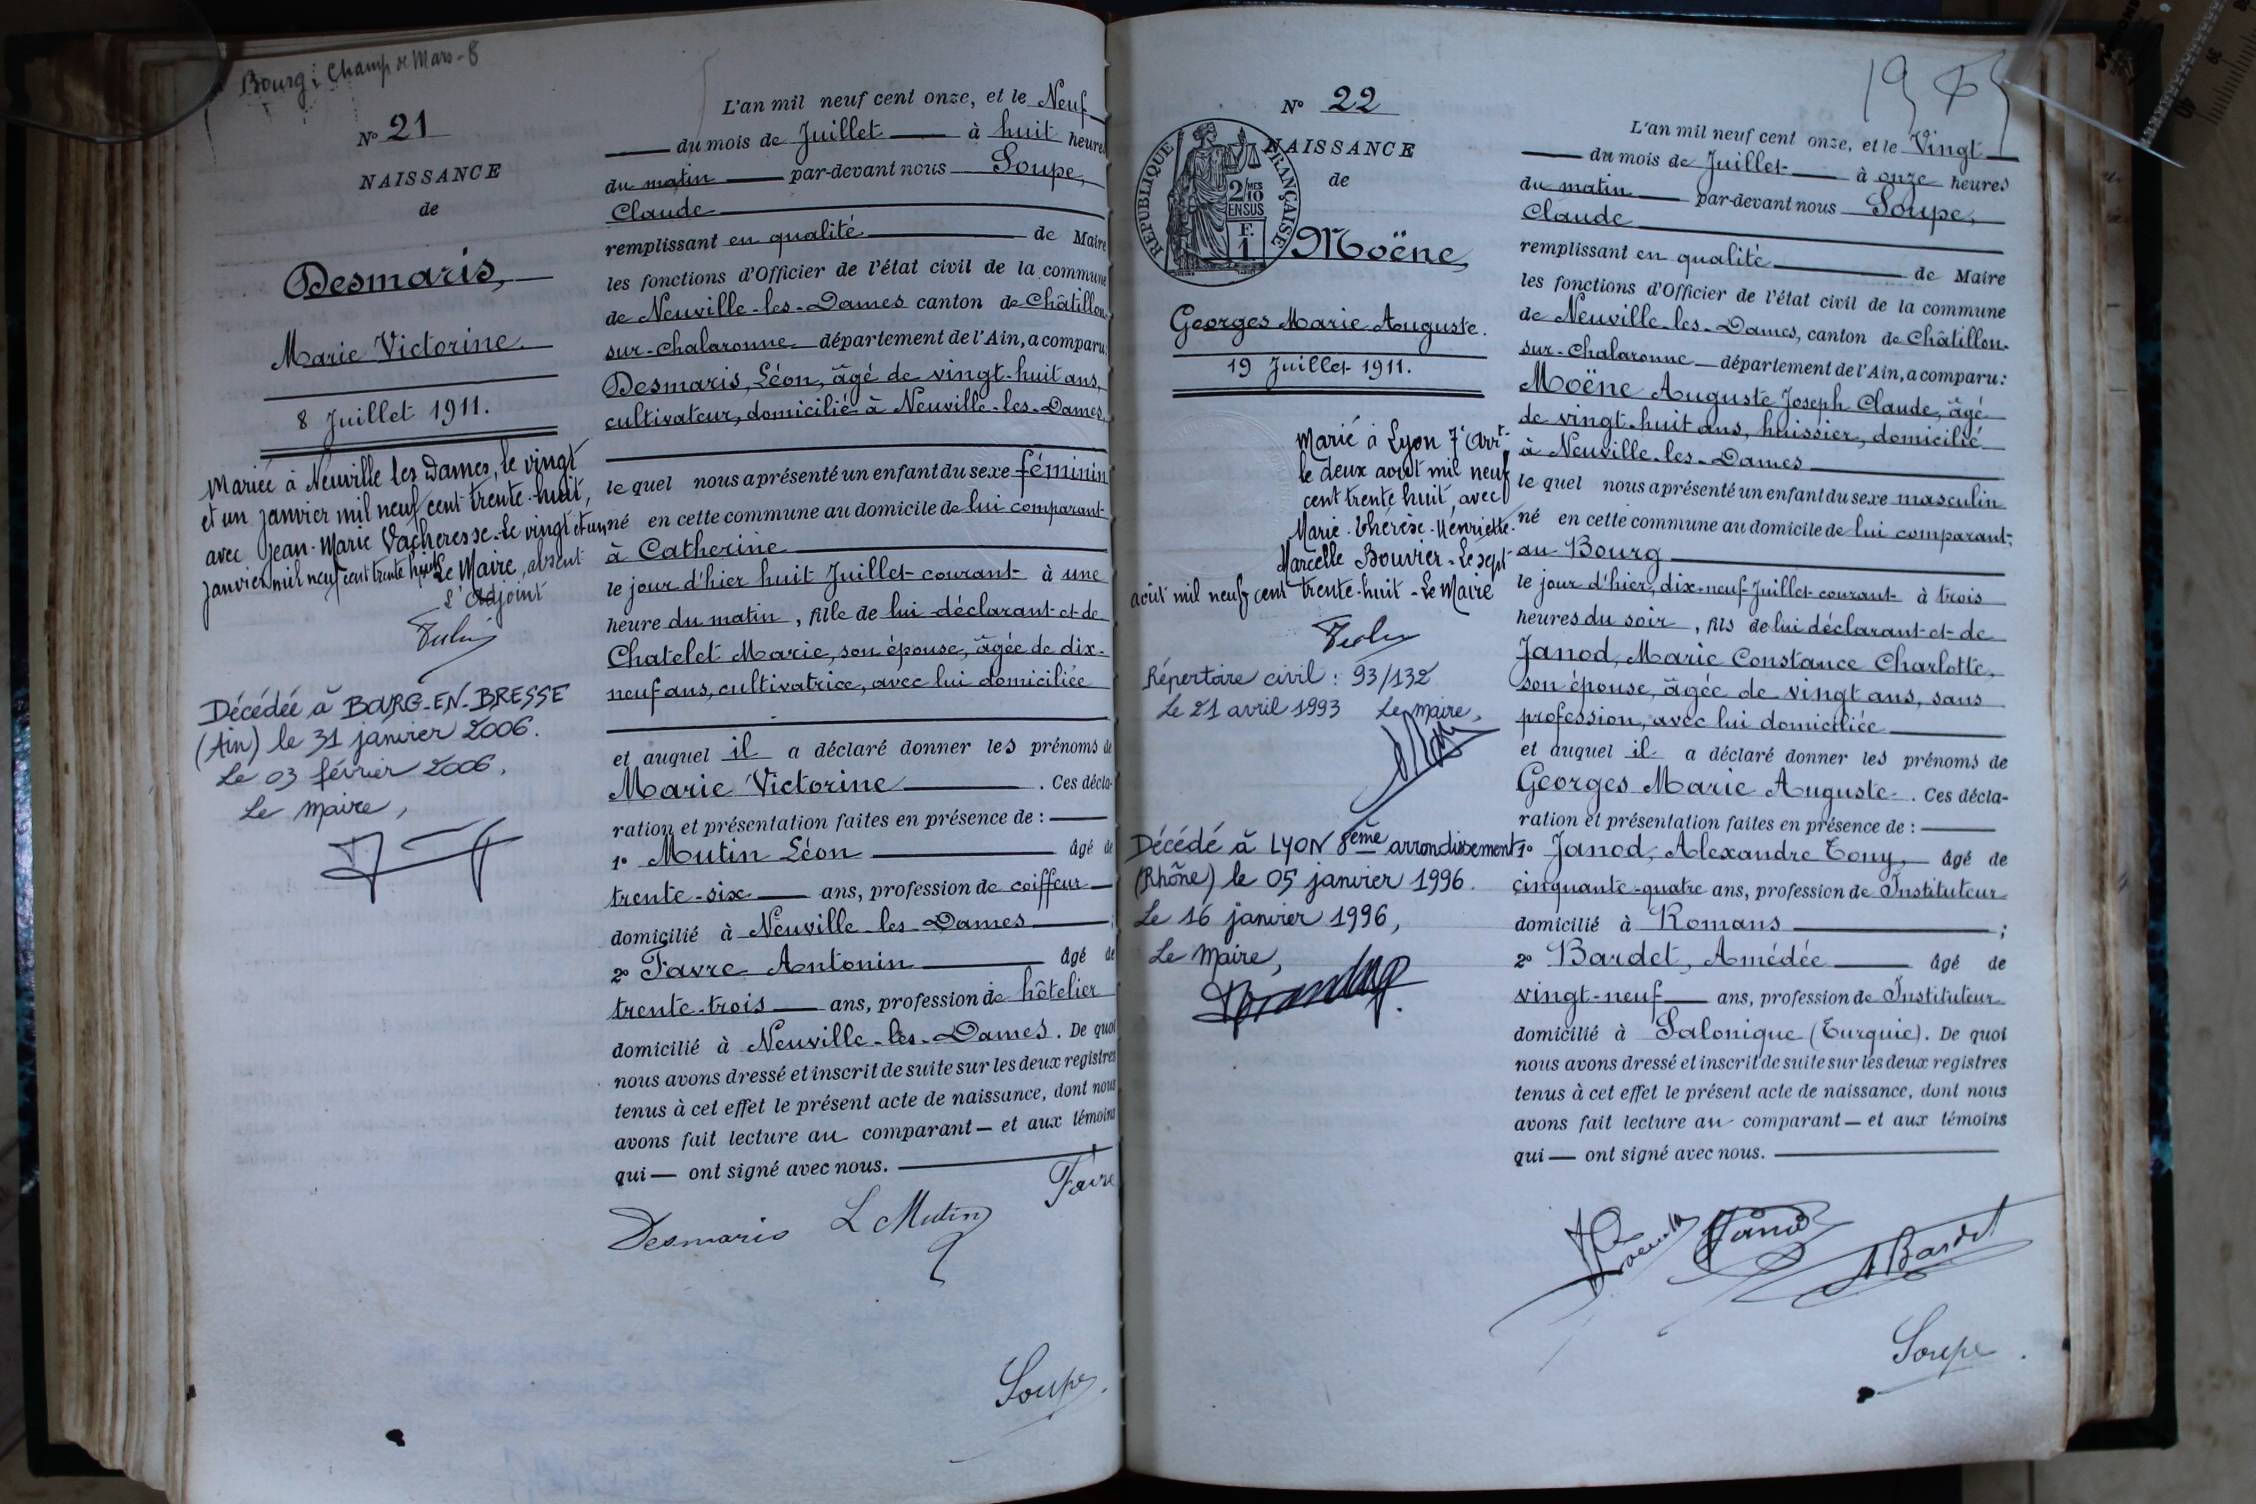 Bourg: Champ de Mars - 8
N° 21
NAISSANCE
de
Desmaris,
Marie Victorine.
8 Juillet 1911.
Mariée à Neuville les Dames, le vingt
et un janvier mil neuf cent trente-huit,
avec Jean-Marie Vacheresse. Le vingt et un
janvier mil neuf cent trente huit
Le Maire, absent
L'Adjoint
Décédée à BOURG-EN-BRESSE
(Ain) le 31 janvier 2006.
Le 03 février 2006,
Le Maire,
L'an mil neuf cent onze, et le Neuf
du mois de Juillet à huit heures
du matin par-devant nous Soupe,
Claude
remplissant en qualité de Maire
les fonctions d'Officier de l'état civil de la commune
de Neuville-les-Dames canton de Châtillon
sur-Chalaronne département de l'Ain, a comparu:
Desmaris, Léon, âgé de vingt-huit ans,
cultivateur, domicilié à Neuville-les-Dames
le quel nous a présenté un enfant du sexe féminin
né en cette commune au domicile de lui comparant
à Catherine
le jour d'hier huit Juillet courant à une
heure du matin, fille de lui déclarant et de
Chatelet Marie, son épouse, âgée de dix-
neuf ans, cultivatrice, avec lui domiciliée
et auquel il a déclaré donner les prénoms de
Marie Victorine. Ces décla-
ration et présentation faites en présence de :
1° Mutin Léon âgé de
trente-six ans, profession de coiffeur
domicilié à Neuville les Dames ;
2° Favre Antonin âgé de
trente-trois ans, profession de hôtelier
domicilié à Neuville-les-Dames. De quoi
nous avons dressé et inscrit de suite sur les deux registres
tenus à cet effet le présent acte de naissance, dont nous
avons fait lecture au comparant — et aux témoins
qui — ont signé avec nous.
Desmaris L Mutin Favre
Soupe.
N° 22
NAISSANCE
de
RÉPUBLIQUE FRANÇAISE
2/10 MES
EN SUS
F.
1
Moëne,
Georges Marie Auguste.
19 Juillet 1911.
Marié à Lyon 7e Arrt
le deux août mil neuf
cent trente huit, avec
Marie-Thérèse-Henriette-
Marcelle Bouvier - Le sept
août mil neuf cent trente-huit - Le Maire
Répertoire civil : 93/132
Le 21 avril 1993 Le maire,
Décédé à LYON 8ème arrondissement
(Rhône) le 05 janvier 1996.
Le 16 janvier 1996,
Le Maire,
L'an mil neuf cent onze, et le Vingt
du mois de Juillet à onze heures
du matin par-devant nous Soupe,
Claude
remplissant en qualité de Maire
les fonctions d'Officier de l'état civil de la commune
de Neuville-les-Dames, canton de Châtillon-
sur-Chalaronne département de l'Ain, a comparu:
Moëne Auguste Joseph Claude, âgé
de vingt-huit ans, huissier, domicilié
à Neuville-les-Dames
le quel nous a présenté un enfant du sexe masculin
né en cette commune au domicile de lui comparant,
au Bourg
le jour d'hier, dix-neuf Juillet courant à trois
heures du soir, fils de lui déclarant et de
Janod, Marie Constance Charlotte,
son épouse, âgée de vingt ans, sans
profession, avec lui domiciliée
et auquel il a déclaré donner les prénoms de
Georges Marie Auguste. Ces décla-
ration et présentation faites en présence de :
1° Janod, Alexandre Tony, âgé de
cinquante-quatre ans, profession de Instituteur
domicilié à Romans ;
2° Bardet, Amédée âgé de
vingt-neuf ans, profession de Instituteur
domicilié à Salonique (Turquie). De quoi
nous avons dressé et inscrit de suite sur les deux registres
tenus à cet effet le présent acte de naissance, dont nous
avons fait lecture au comparant — et aux témoins
qui — ont signé avec nous.
Janod
A Bardet
Soupe.